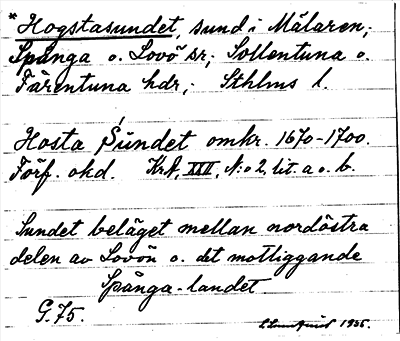 * Hogstasundet, sund i Mälaren;
Spånga o. Lovö sr; Sollentuna o.
Färentuna hdr; Sthlms l.
Hosta Sundet omkr. 1670-1700.
Förf. okd. KrA, XXII, N:o 2, lit. a o. b.
Sundet beläget mellan nordöstra
delen av Lovön o. det motliggande
Spånga-landet
G. 75.
1955.